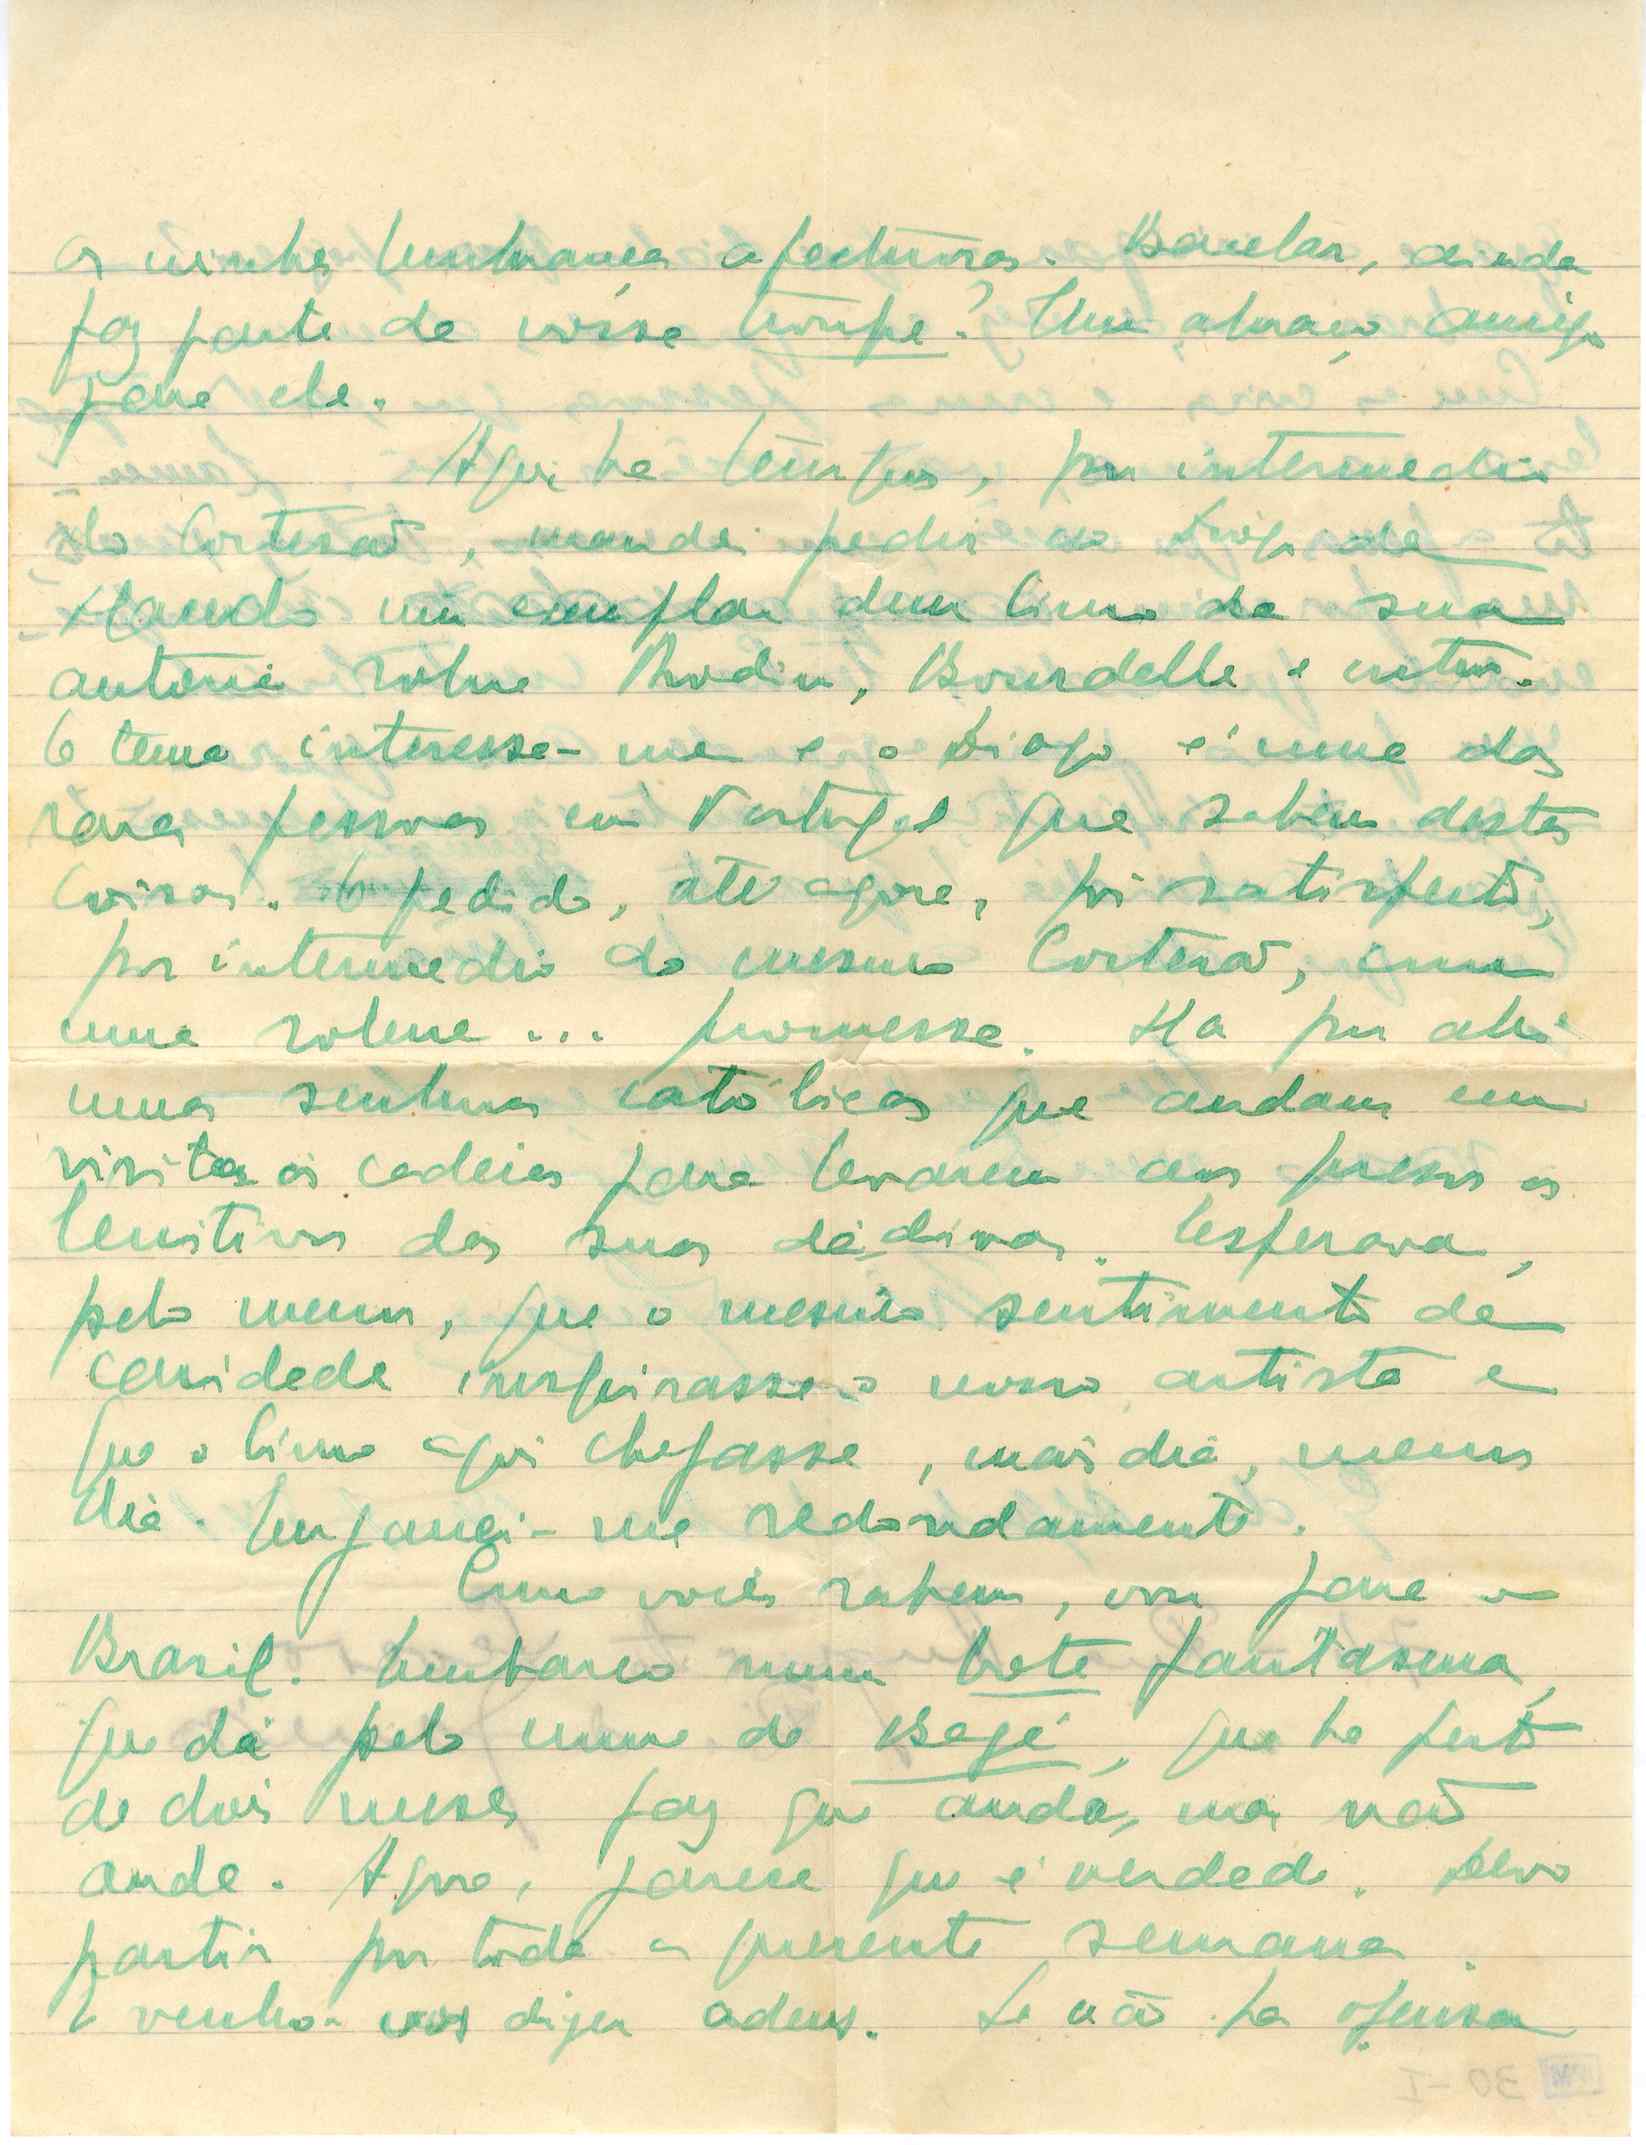 as minhas lembranças afectuosas. Bacelar, ainda
faz parte da vossa troupe? Um abraço amigo
para ele.
Aqui ha tempos, por intermedio
do Cortesão, mandei pedir ao Diogo de
Macedo um exemplar dum livro da sua
autoria sobre Rodin, Bourdelle e outros.
O tema interessa-me e o Diogo é uma das
raras pessoas em Portugal que sabem destas
coisas. O pedido, até agora, foi satisfeito,
por intermedio do mesmo Cortesão, com
uma solene... promessa. Ha por ahi
umas senhoras católicas que andam em
visita ás cadeias para levarem aos presos os
lenitivos das suas dádivas. Esperava,
pelo menos, que o mesmo sentimento de
caridade inspirasse o nosso artista e
que o livro aqui chegasse, mais dia, menos
dia. Enganei-me redondamente.
Como vocês sabem, vou para o
Brasil. Embarco num bote fantasma,
que dá pelo nome de Bagé, que ha perto
de dois meses faz que anda, mas não
anda. Agora, parece que é verdade. Devo
partir por toda a presente semana.
E venho-vos dizer adeus. Se não ha ofensa
30-I